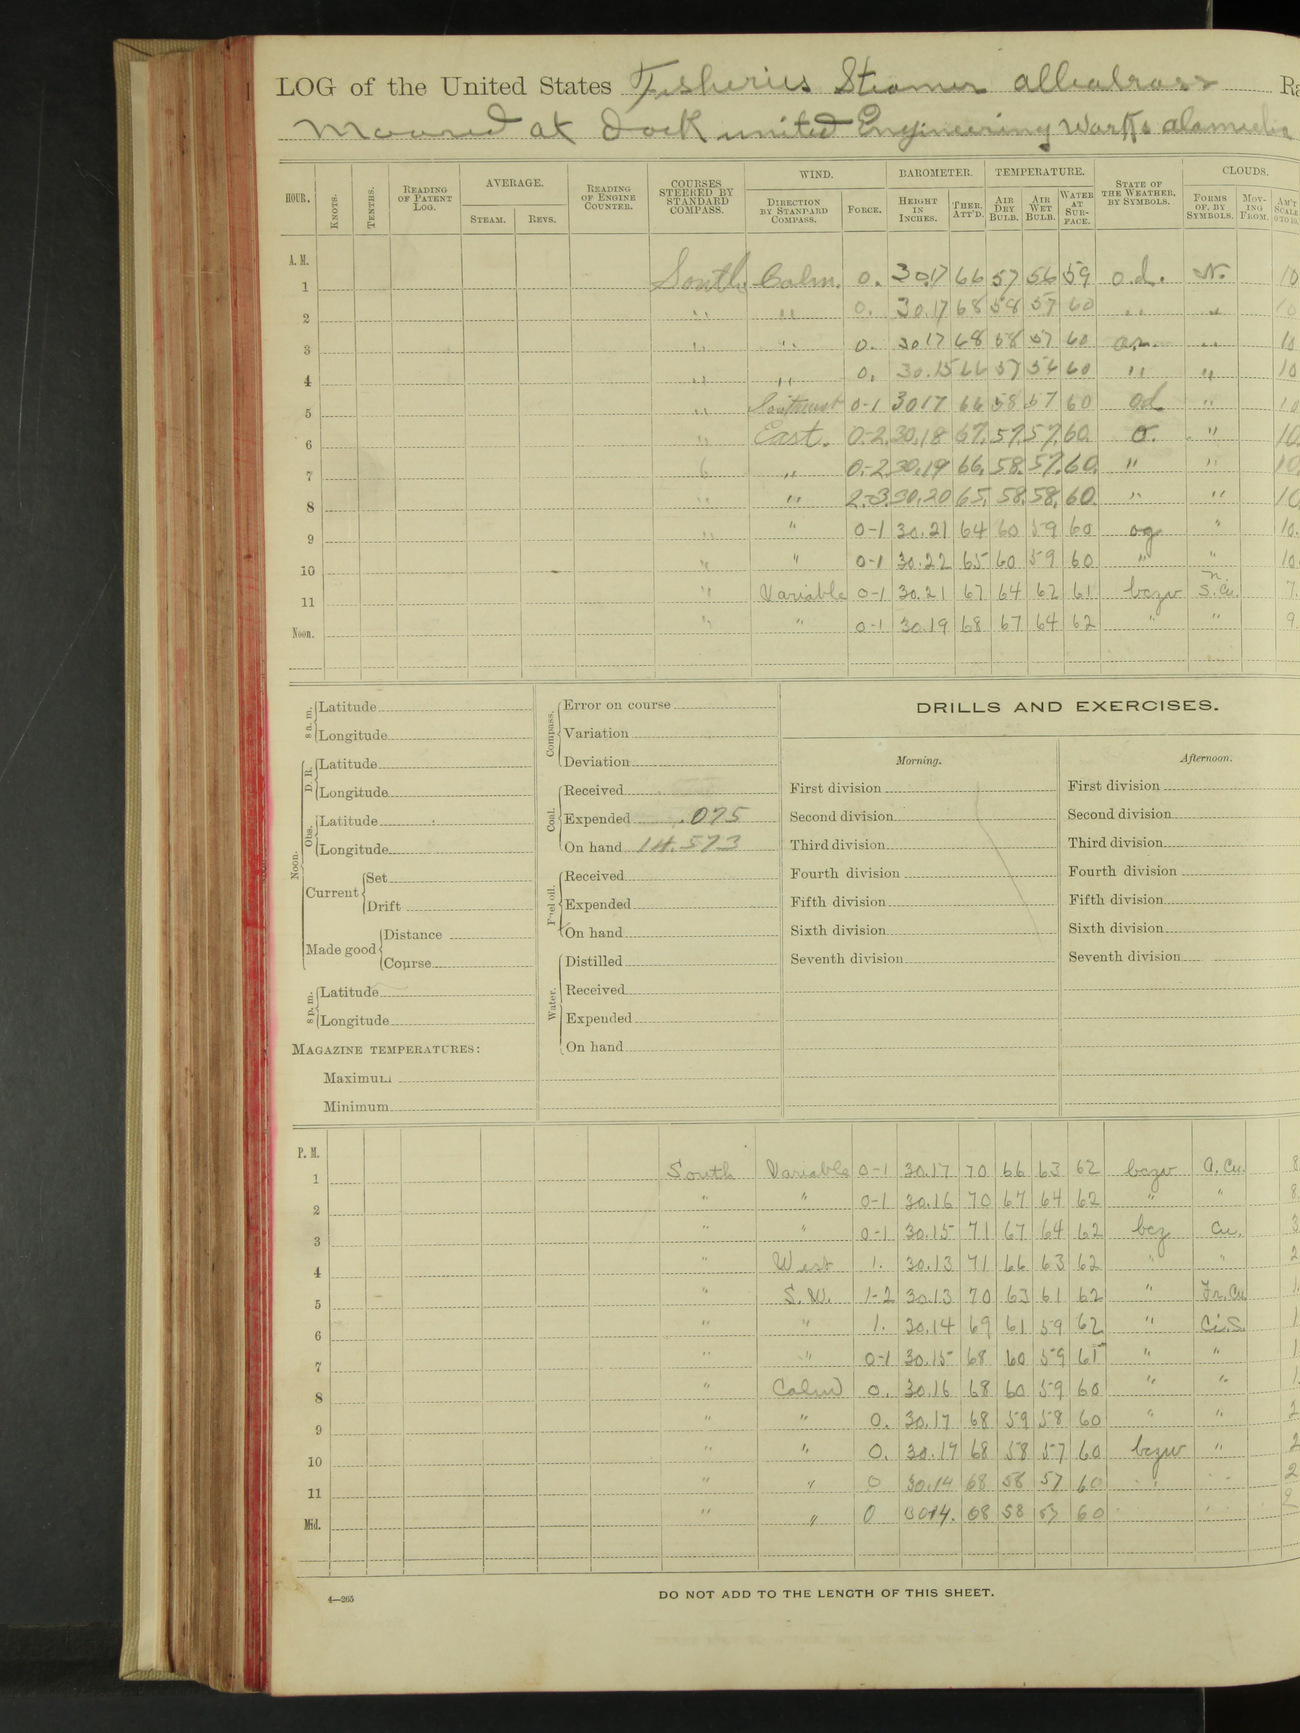 LOG of the United States Fisheries Steamer Albatross Ra
Moored at Dock United Engineering Works Alameda
HOUR. KNOTS. TENTHS. READING OF PATENT LOG. AVERAGE. STEAM. REVS. READING OF ENGINE COUNTER. COURSES STEERED BY STANDARD COMPASS. WIND. DIRECTION BY STANDARD COMPASS. FORCE. BAROMETER. HEIGHT IN INCHES. THER. ATT'D. TEMPERATURE. AIR DRY BULB. AIR WET BULB. WATER AT SURFACE. STATE OF THE WEATHER, BY SYMBOLS. CLOUDS. FORMS OF, BY SYMBOLS. MOVING FROM. AM'T SCALE 0 TO 10.
A. M.
1 South Calm. 0. 30.17 66 57 56 59 o.d. N. 10
2 " " 0. 30.17 68 58 57 60 " " 10
3 " " 0. 30 17 68 58 57 60 " 10
4 " " 0. 30.15 66 57 56 60 " " 10
5 " Southwest 0-1 30 17 66 58 57 60 od " 10
6 " East. 0-2. 30.18 67. 57. 57. 60. o. " 10.
7 " 0-2 30.19 66. 58. 57. 60. " " 10
8 " " 2-3. 30.20 65. 58. 58. 60. " " 10
9 " " 0-1 30.21 64 60 59 60 og " 10.
10 " " 0-1 30.22 65 60 59 60 " " 10.
11 " Variable 0-1 30.21 67 64 62 61 bczw S. Cu. n. 7.
Noon. " " 0-1 30.19 68 67 64 62 " " 9.
8 a. m. Latitude
Longitude
Noon.
D. R. Latitude
Longitude
Obs. Latitude
Longitude
Current Set
Drift
Made good Distance
Course
8 p. m. Latitude
Longitude
MAGAZINE TEMPERATURES:
Maximum
Minimum
Compass. Error on course
Variation
Deviation
Coal. Received
Expended .075
On hand 14.573
Fuel oil. Received
Expended
On hand
Water. Distilled
Received
Expended
On hand
DRILLS AND EXERCISES.
Morning. Afternoon.
First division First division
Second division Second division
Third division Third division
Fourth division Fourth division
Fifth division Fifth division
Sixth division Sixth division
Seventh division Seventh division
P. M.
1 South Variable 0-1 30.17 70 66 63 62 bczw A. Cu. 8
2 " " 0-1 30.16 70 67 64 62 " " 8.
3 " " 0-1 30.15 71 67 64 62 bcz Cu. 3
4 " West 1. 30.13 71 66 63 62 " " 2
5 " S. W. 1-2 30.13 70 63 61 62 " Fr. Cu. 1.
6 " " 1. 30.14 69 61 59 62 " Ci. S. 1
7 " " 0-1 30.15 68 60 59 61 " " 1
8 " Calm 0. 30.16 68 60 59 60 " " 1.
9 " " 0. 30.17 68 59 58 60 " " 2
10 " " 0. 30.17 68 58 57 60 bczw " 2
11 " " 0 30.14 68 58 57 60 " " 2
Mid. " " 0 3014. 68 58 57 60 " " 2
4—265
DO NOT ADD TO THE LENGTH OF THIS SHEET.